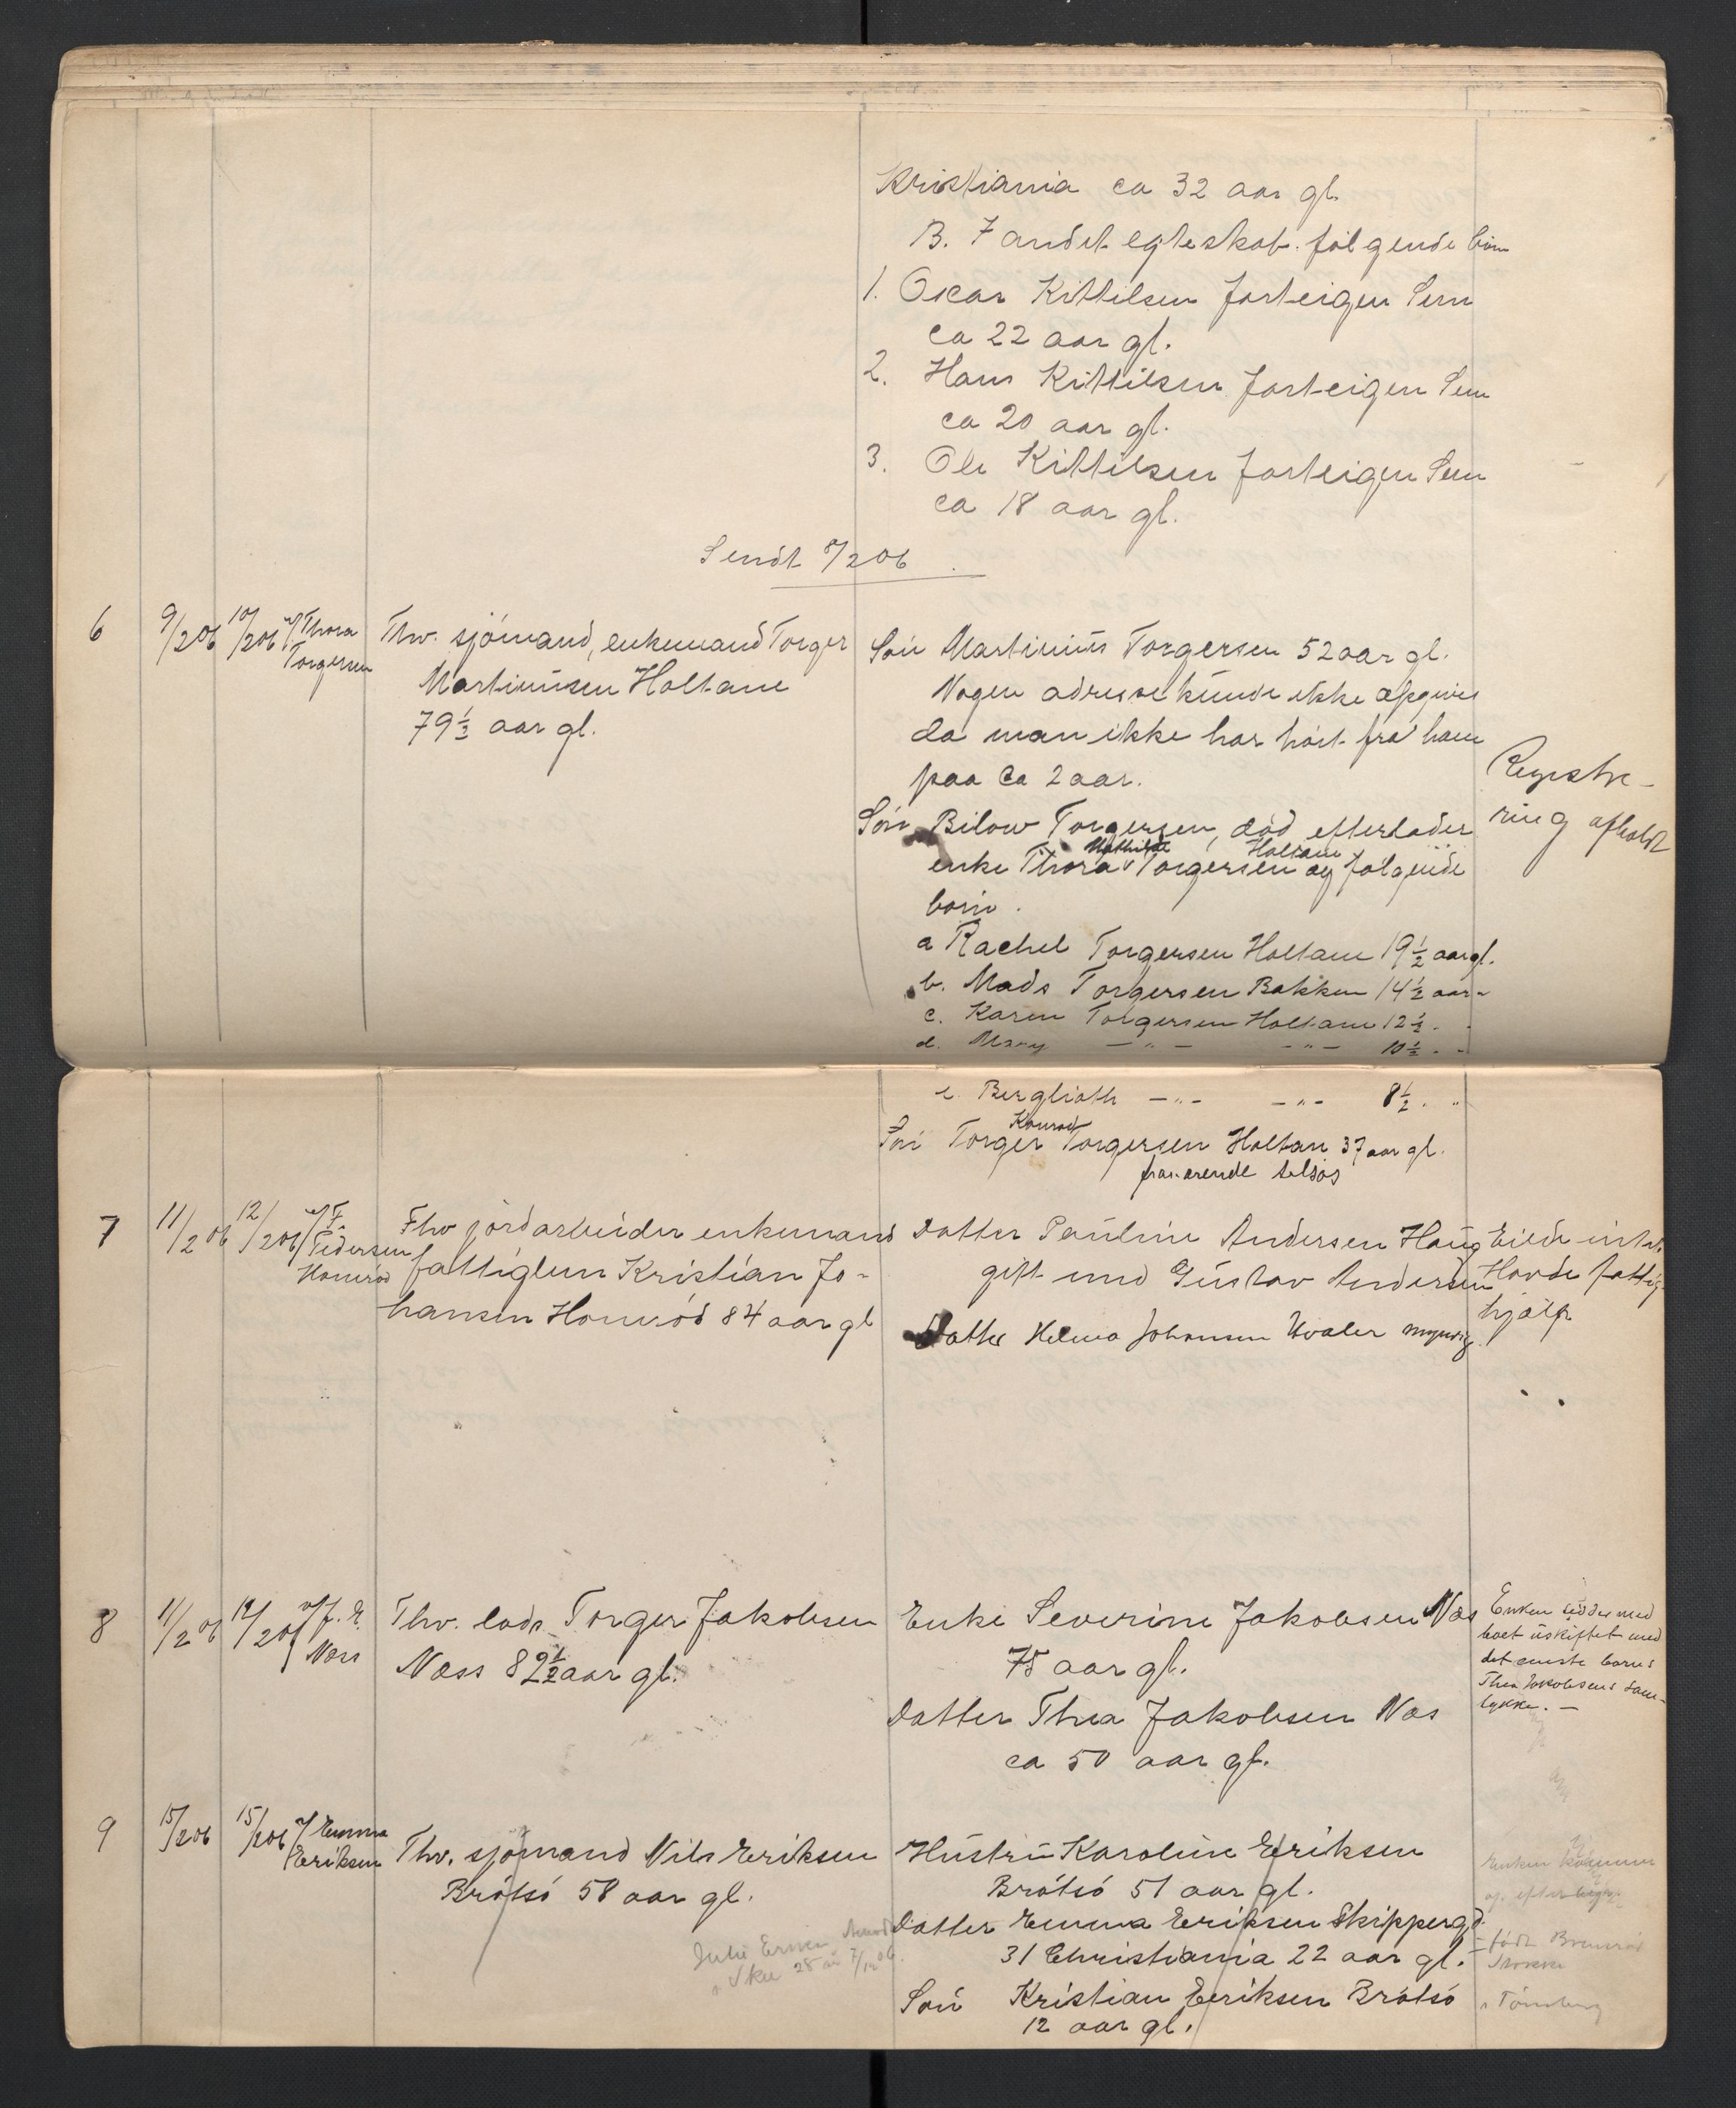 Kristiania ca 32 aar gl.
B. I andet egteskab følgende børn
1. Oscar Kittilsen Jarteigen Sem
ca 22 aar gl.
2. Hans Kittilsen Jarteigen Sem
ca 20 aar gl.
3. Ole Kittilsen Jarteigen Sem
ca 18 aar gl.
Sendt 8/2 06
6 9/2 06 10/2 06 v/ Thora
Torgersen
Fhv. sjömand, enkemand Torger
Martinusen Holtane
79 1/2 aar gl.
Sön Martinius Torgersen 52 aar gl.
Nogen adresse kunde ikke opgives
da man ikke har hört fra ham
paa ca 2 aar.
Sön Bilow Torgersen, död efterlader
enke Thora Mathilde Torgersen Holtane og fölgende
börn.
a Rachel Torgersen Holtane 19 1/2 aar gl.
b. Mads Torgersen Bakken 14 1/2 aar "
c. Karen Torgersen Holtane 12 1/2 " "
d. Mary — " — — " — 10 1/2 " "
Registre-
ring afholdt
e Berglioth — " — — " — 8 1/2 " "
Sön Torger Konrad Torgersen Holtan 37 aar gl.
fraværende tilsjøs
7 11/2 06 12/2 06 v/ F.
Pedersen
Homröd
Fhv jordarbeider enkemand
fattiglem Kristian Jo-
hansen Homröd 84 aar gl
Datter Pauline Andersen Haug
gift med Gustav Andersen
Datter Helma Johansen Hvaler myndig
Eiede intet
Havde fattig
hjælp
8 11/2 06 14/2 06 v/ J. E.
Næss
Fhv. lods Torger Jakobsen
Næss 82 1/2 aar gl.
Enke Severine Jakobsen Næs
75 aar gl.
Datter Thea Jakobsen Næs
ca 50 aar gl.
Enken sidder med
boet uskiftet med
det eneste barns
Thea Jakobsens sam-
tykke. —
9 15/2 06 15/2 06 v/ Emma
Eriksen
Fhv. sjömand Nils Eriksen
Brötsö 58 aar gl.
Hustru Karoline Eriksen
Brötsö 51 aar gl.
Datter Emma Eriksen Skippergd.
31 Christiania 22 aar gl.
Sön Kristian Eriksen Brötsö
12 aar gl.
Enken kommer
født
Tönsberg
28 7/12 06.